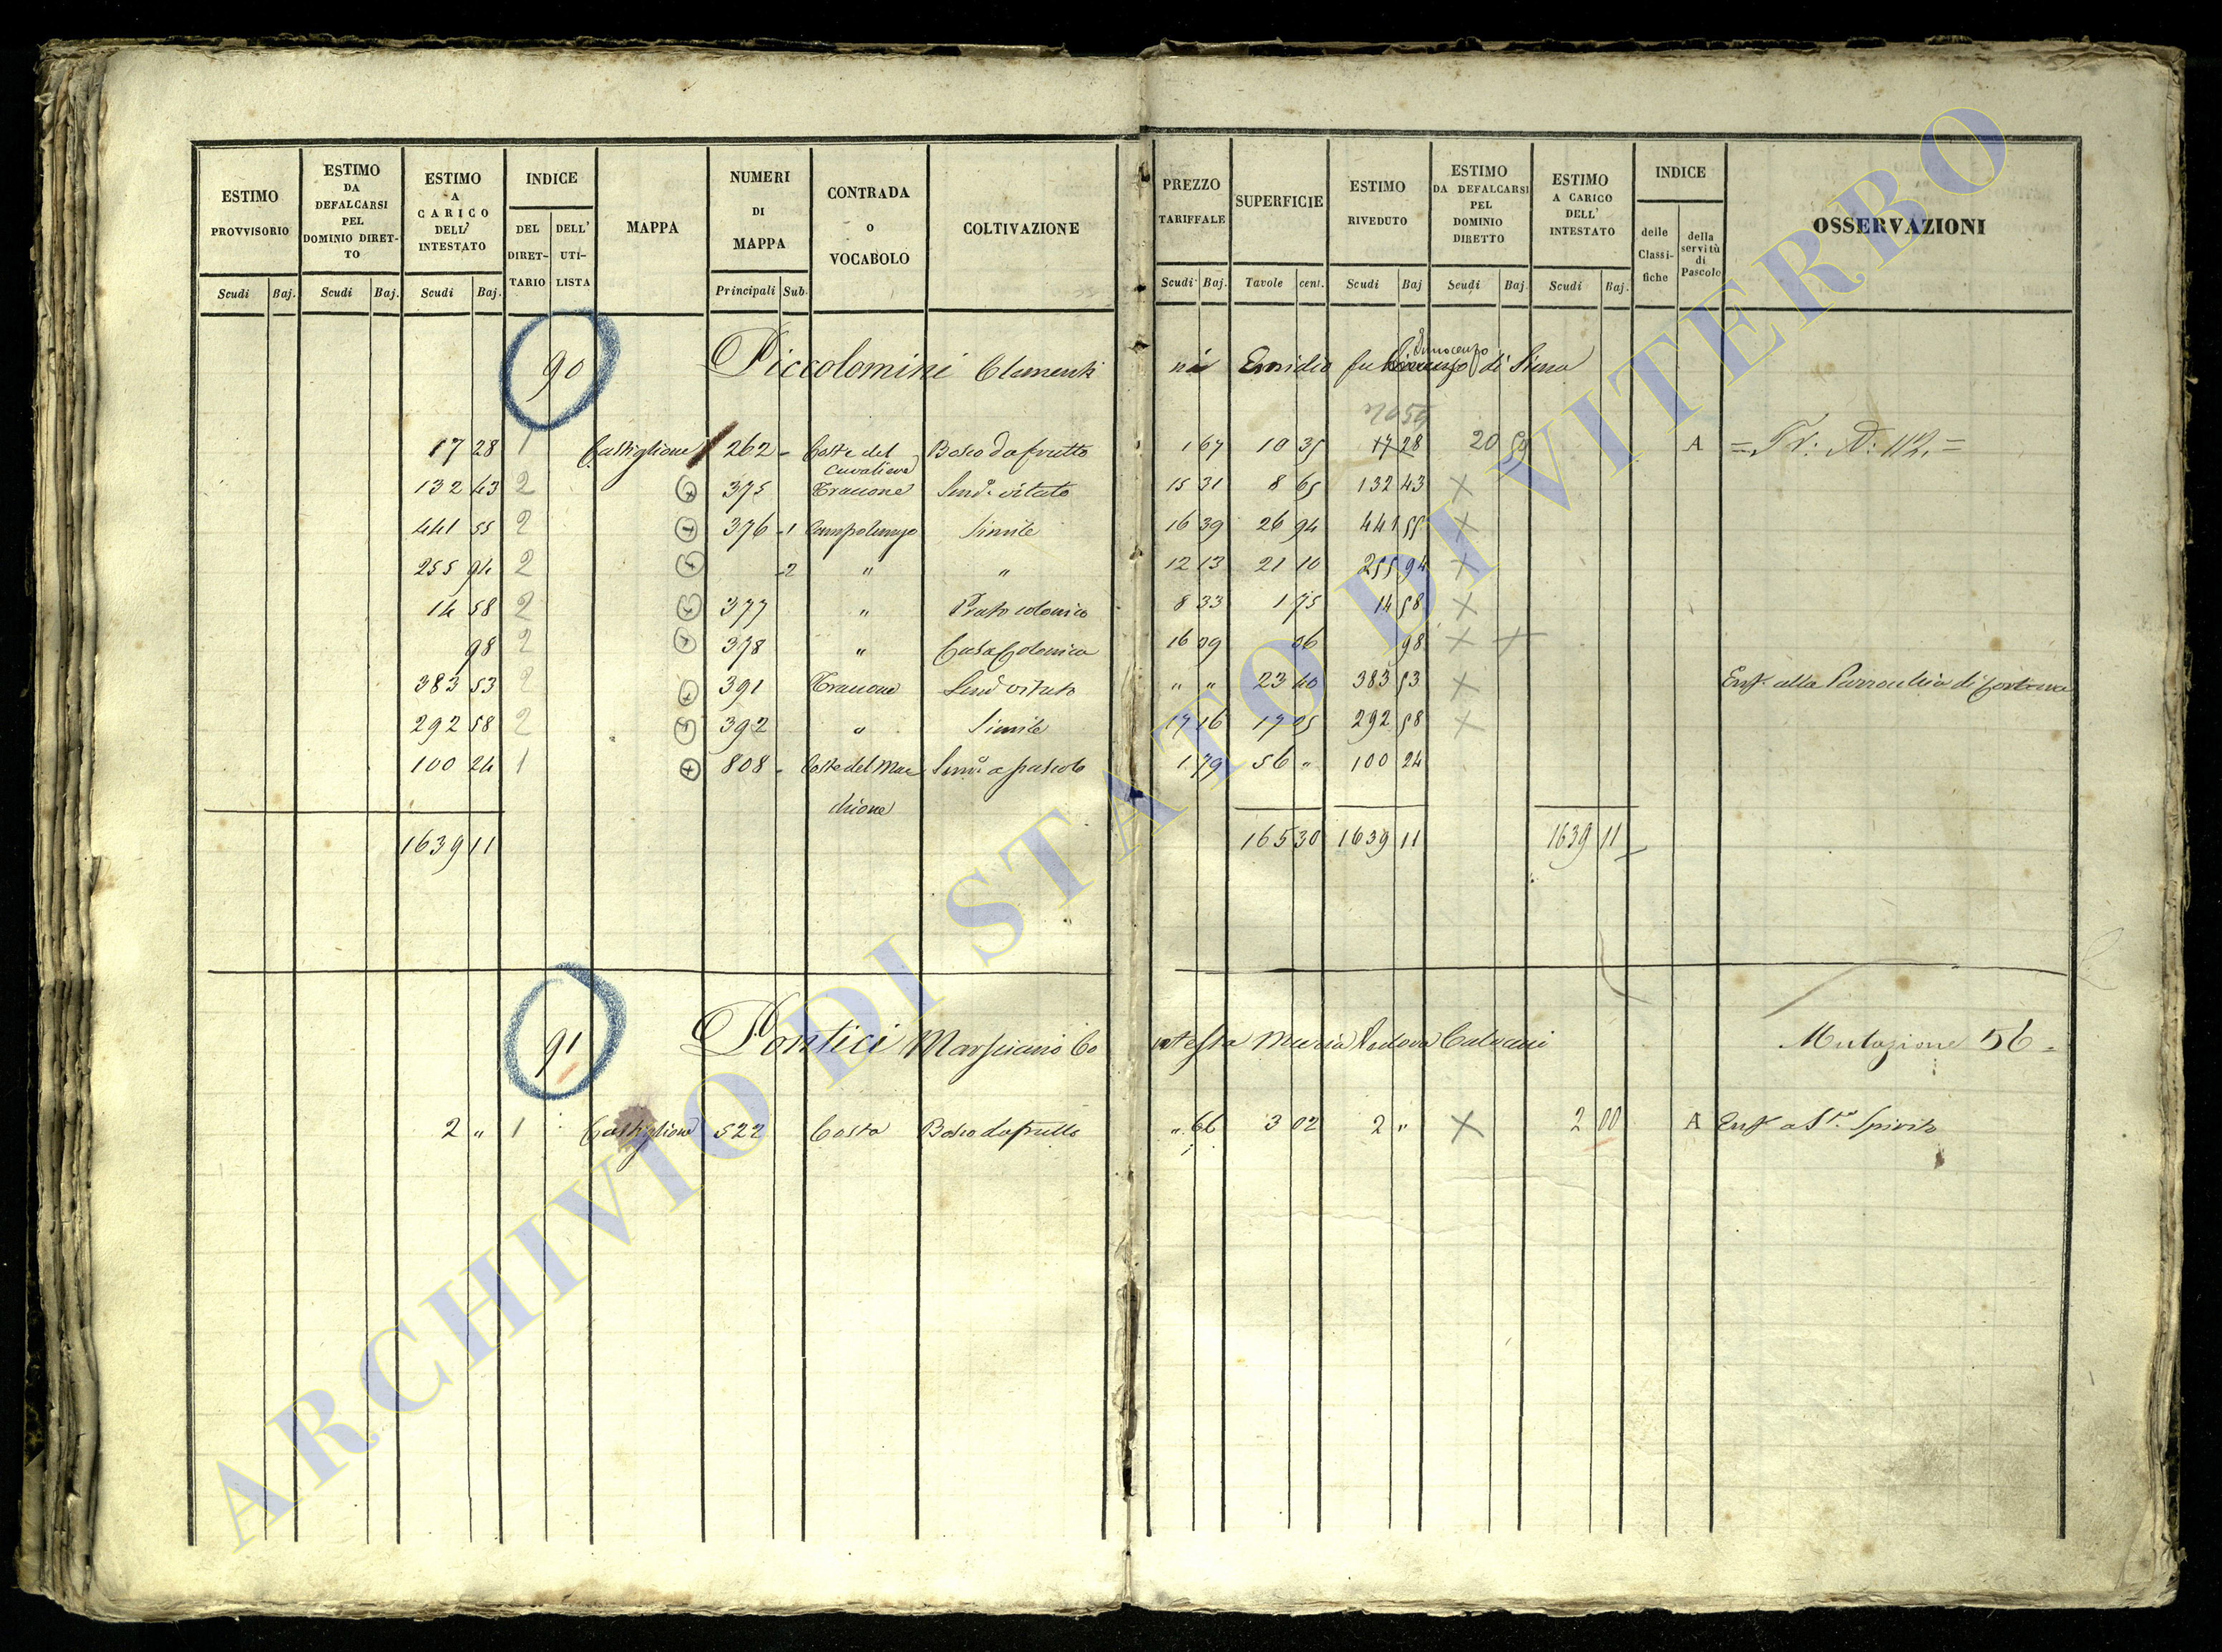 ESTIMO PROVVISORIO
ESTIMO DA DEFALCARSI PEL DOMINIO DIRET-TO
ESTIMO A CARICO DELL' INTESTATO
INDICE
DEL DIRET-TARIO
DELL' UTI-LISTA
MAPPA
NUMERI DI MAPPA
CONTRADA o VOCABOLO
COLTIVAZIONE
PREZZO TARIFFALE
SUPERFICIE
ESTIMO RIVEDUTO
ESTIMO DA DEFALCARSI PEL DOMINIO DIRETTO
ESTIMO A CARICO DELL' INTESTATO
INDICE
delle Classi-fiche
della servitù di Pascolo
OSSERVAZIONI
Scudi Baj. Scudi Baj. Scudi Baj. Principali Sub. Scudi Baj. Tavole cent. Scudi Baj Scudi Baj. Scudi Baj.
90 Piccolomini Clementi ni Emidio fu Innocenzo di Siena
2059
17 28 1 Castiglione 262 - Coste del Cavaliere Bosco da frutto 1 67 10 35 17 28 20 59 A = Tr: N: 112. =
132 43 2 + 375 Tracione Sem.o vitato 15 31 8 65 132 43 ×
441 55 2 + 376 -1 Campolungo Simile 16 39 26 94 441 55 ×
255 94 2 + -2 " " 12 13 21 10 255 94 ×
14 58 2 + 377 " Prato colonico 8 33 1 75 14 58 ×
98 2 + 378 " Casa Colonica 16 39 06 98 × +
383 53 2 + 391 Tracione Sem.o vitato " " 23 40 383 53 × Enf. alla Parrocchia di
292 58 2 + 392 " Simile 17 16 17 05 292 58 ×
100 24 1 + 808 - Coste del Mac chione Sem.o a pascolo 1 79 56 " 100 24
1639 11 165 30 1639 11 1639 11
91 Pontici Marsciano Co ntessa Maria Vedova Calvani Mutazione 56 =
2 " 1 Castiglione 522 Costa Bosco da frutto " 66 3 02 2 " × 2 00 A Enf. a S.to Spirito
ARCHIVIO DI STATO DI VITERBO